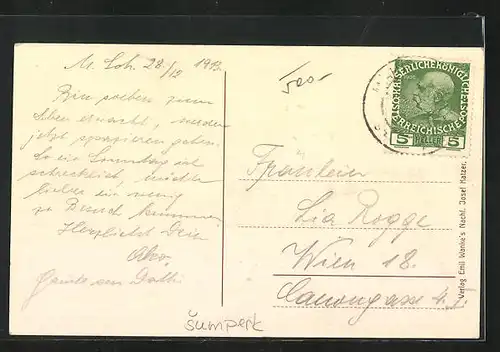 M. Sch. 28./12 1913.
Bin soeben zum
Leben erwacht, werden
jetzt spazieren gehen.
So ein Sonntag ist
schrecklich, möchte
lieber ein wenig
zu Besuch kommen
Herzlichst Dein
Grüsse an Dolli
KAISERLICHE KÖNIGLICHE
ÖSTERREICHISCHE POST
5 HELLER 5
Fräulein
Lia Rogge
Wien 18.
Canongasse
Verlag Emil Wanke's Nachf. Josef Ratzer.
šumperk